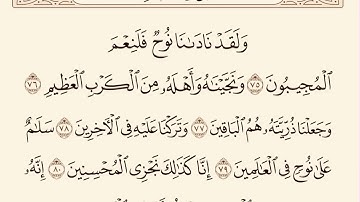 وَلَقَدۡ نَادَىٰنَا نُوحٞ فَلَنِعۡمَ
ٱلۡمُجِيبُونَ ٧٥ وَنَجَّيۡنَٰهُ وَأَهۡلَهُۥ مِنَ ٱلۡكَرۡبِ ٱلۡعَظِيمِ ٧٦
وَجَعَلۡنَا ذُرِّيَّتَهُۥ هُمُ ٱلۡبَاقِينَ ٧٧ وَتَرَكۡنَا عَلَيۡهِ فِي ٱلۡأٓخِرِينَ ٧٨ سَلَٰمٌ
عَلَىٰ نُوحٖ فِي ٱلۡعَٰلَمِينَ ٧٩ إِنَّا كَذَٰلِكَ نَجۡزِي ٱلۡمُحۡسِنِينَ ٨٠ إِنَّهُۥ